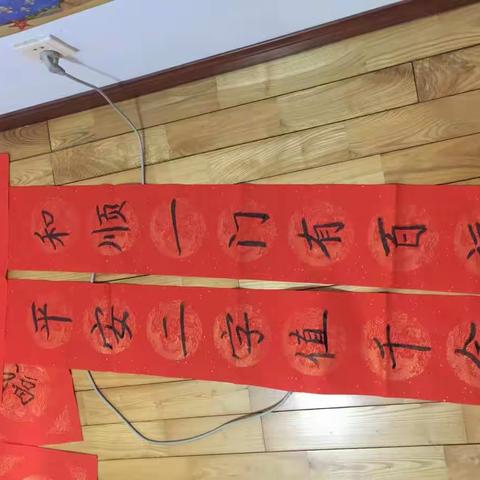 和顺一门有百
平安二字值千